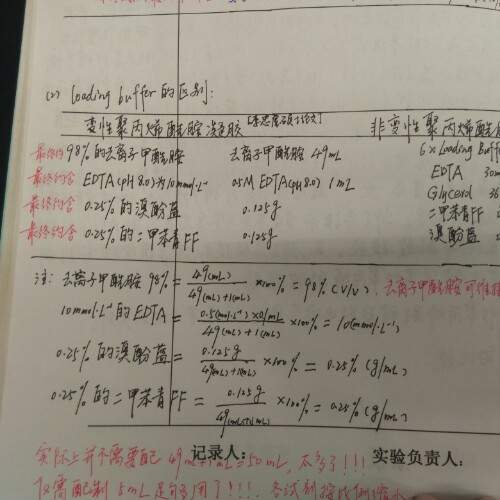 (2) loading buffer的区别:
变性聚丙烯酰胺凝胶 非变性聚丙烯酰
最终约98%的去离子甲酰胺 去离子甲酰胺 49mL 6×Loading Buffe
最终约含 EDTA(pH8.0)为10mmol·L⁻¹ 0.5M EDTA(pH8.0) 1mL EDTA 30m
最终约含 0.25%的溴酚蓝 0.125g Glycerol 36
最终约含 0.25%的二甲苯青FF 0.125g 二甲苯青FF
溴酚蓝
注: 去离子甲酰胺 98% = 49(mL) / 49(mL)+1(mL) ×100% = 98% (V/V). 去离子甲酰胺可
10mmol·L⁻¹的EDTA = 0.5(mol·L⁻¹)×1mL / 49(mL)+1(mL) ×100% = 10(mmol·L⁻¹)
0.25%的溴酚蓝 = 0.125g / 49(mL)+1(mL) ×100% = 0.25% (g/mL)
0.25%的二甲苯青FF = 0.125g / 49(mL)+1(mL) ×100% = 0.25% (g/mL)
实际上并不需要配 49mL+1mL=50mL, 太多了!!!
记录人: 实验负责人:
仅需配制 5mL 足够用了!!!, 各试剂按比例缩小